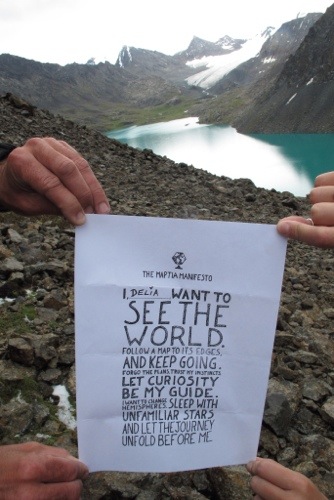 THE MAPTIA MANIFESTO
I, DELIA WANT TO
SEE THE
WORLD.
FOLLOW A MAP TO ITS EDGES,
AND KEEP GOING.
FORGO THE PLANS. TRUST MY INSTINCTS.
LET CURIOSITY
BE MY GUIDE.
I WANT TO CHANGE
HEMISPHERES. SLEEP WITH
UNFAMILIAR STARS
AND LET THE JOURNEY
UNFOLD BEFORE ME.